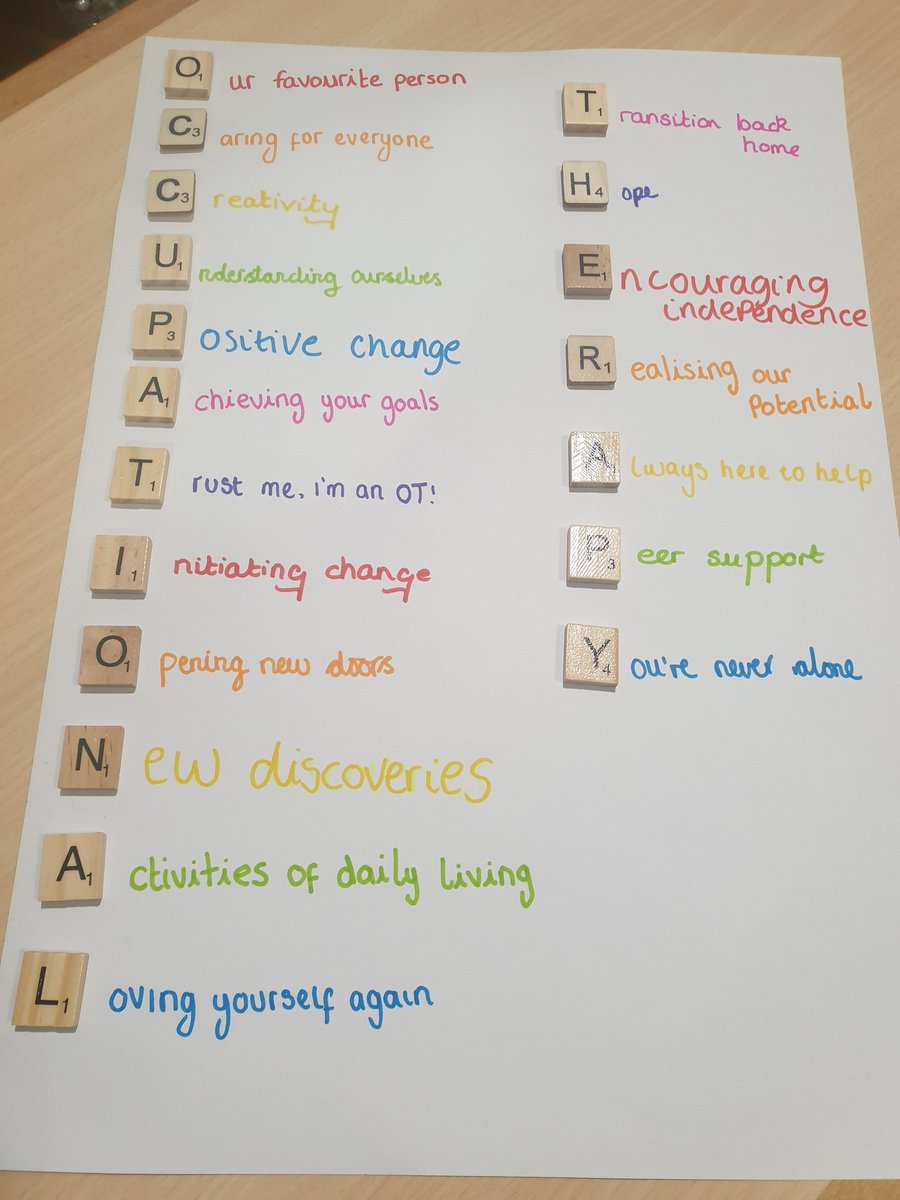 O1ur favourite person
C3aring for everyone
C3reativity
U1nderstanding ourselves
P3ositive change
A1chieving your goals
T1rust me, i'm an OT!
I1nitiating change
O1pening new doors
N1ew discoveries
A1ctivities of daily living
L1oving yourself again
T1ransition back
home
H4ope
E1ncouraging
independence
R1ealising our
potential
A1lways here to help
P3eer support
Y4ou're never alone